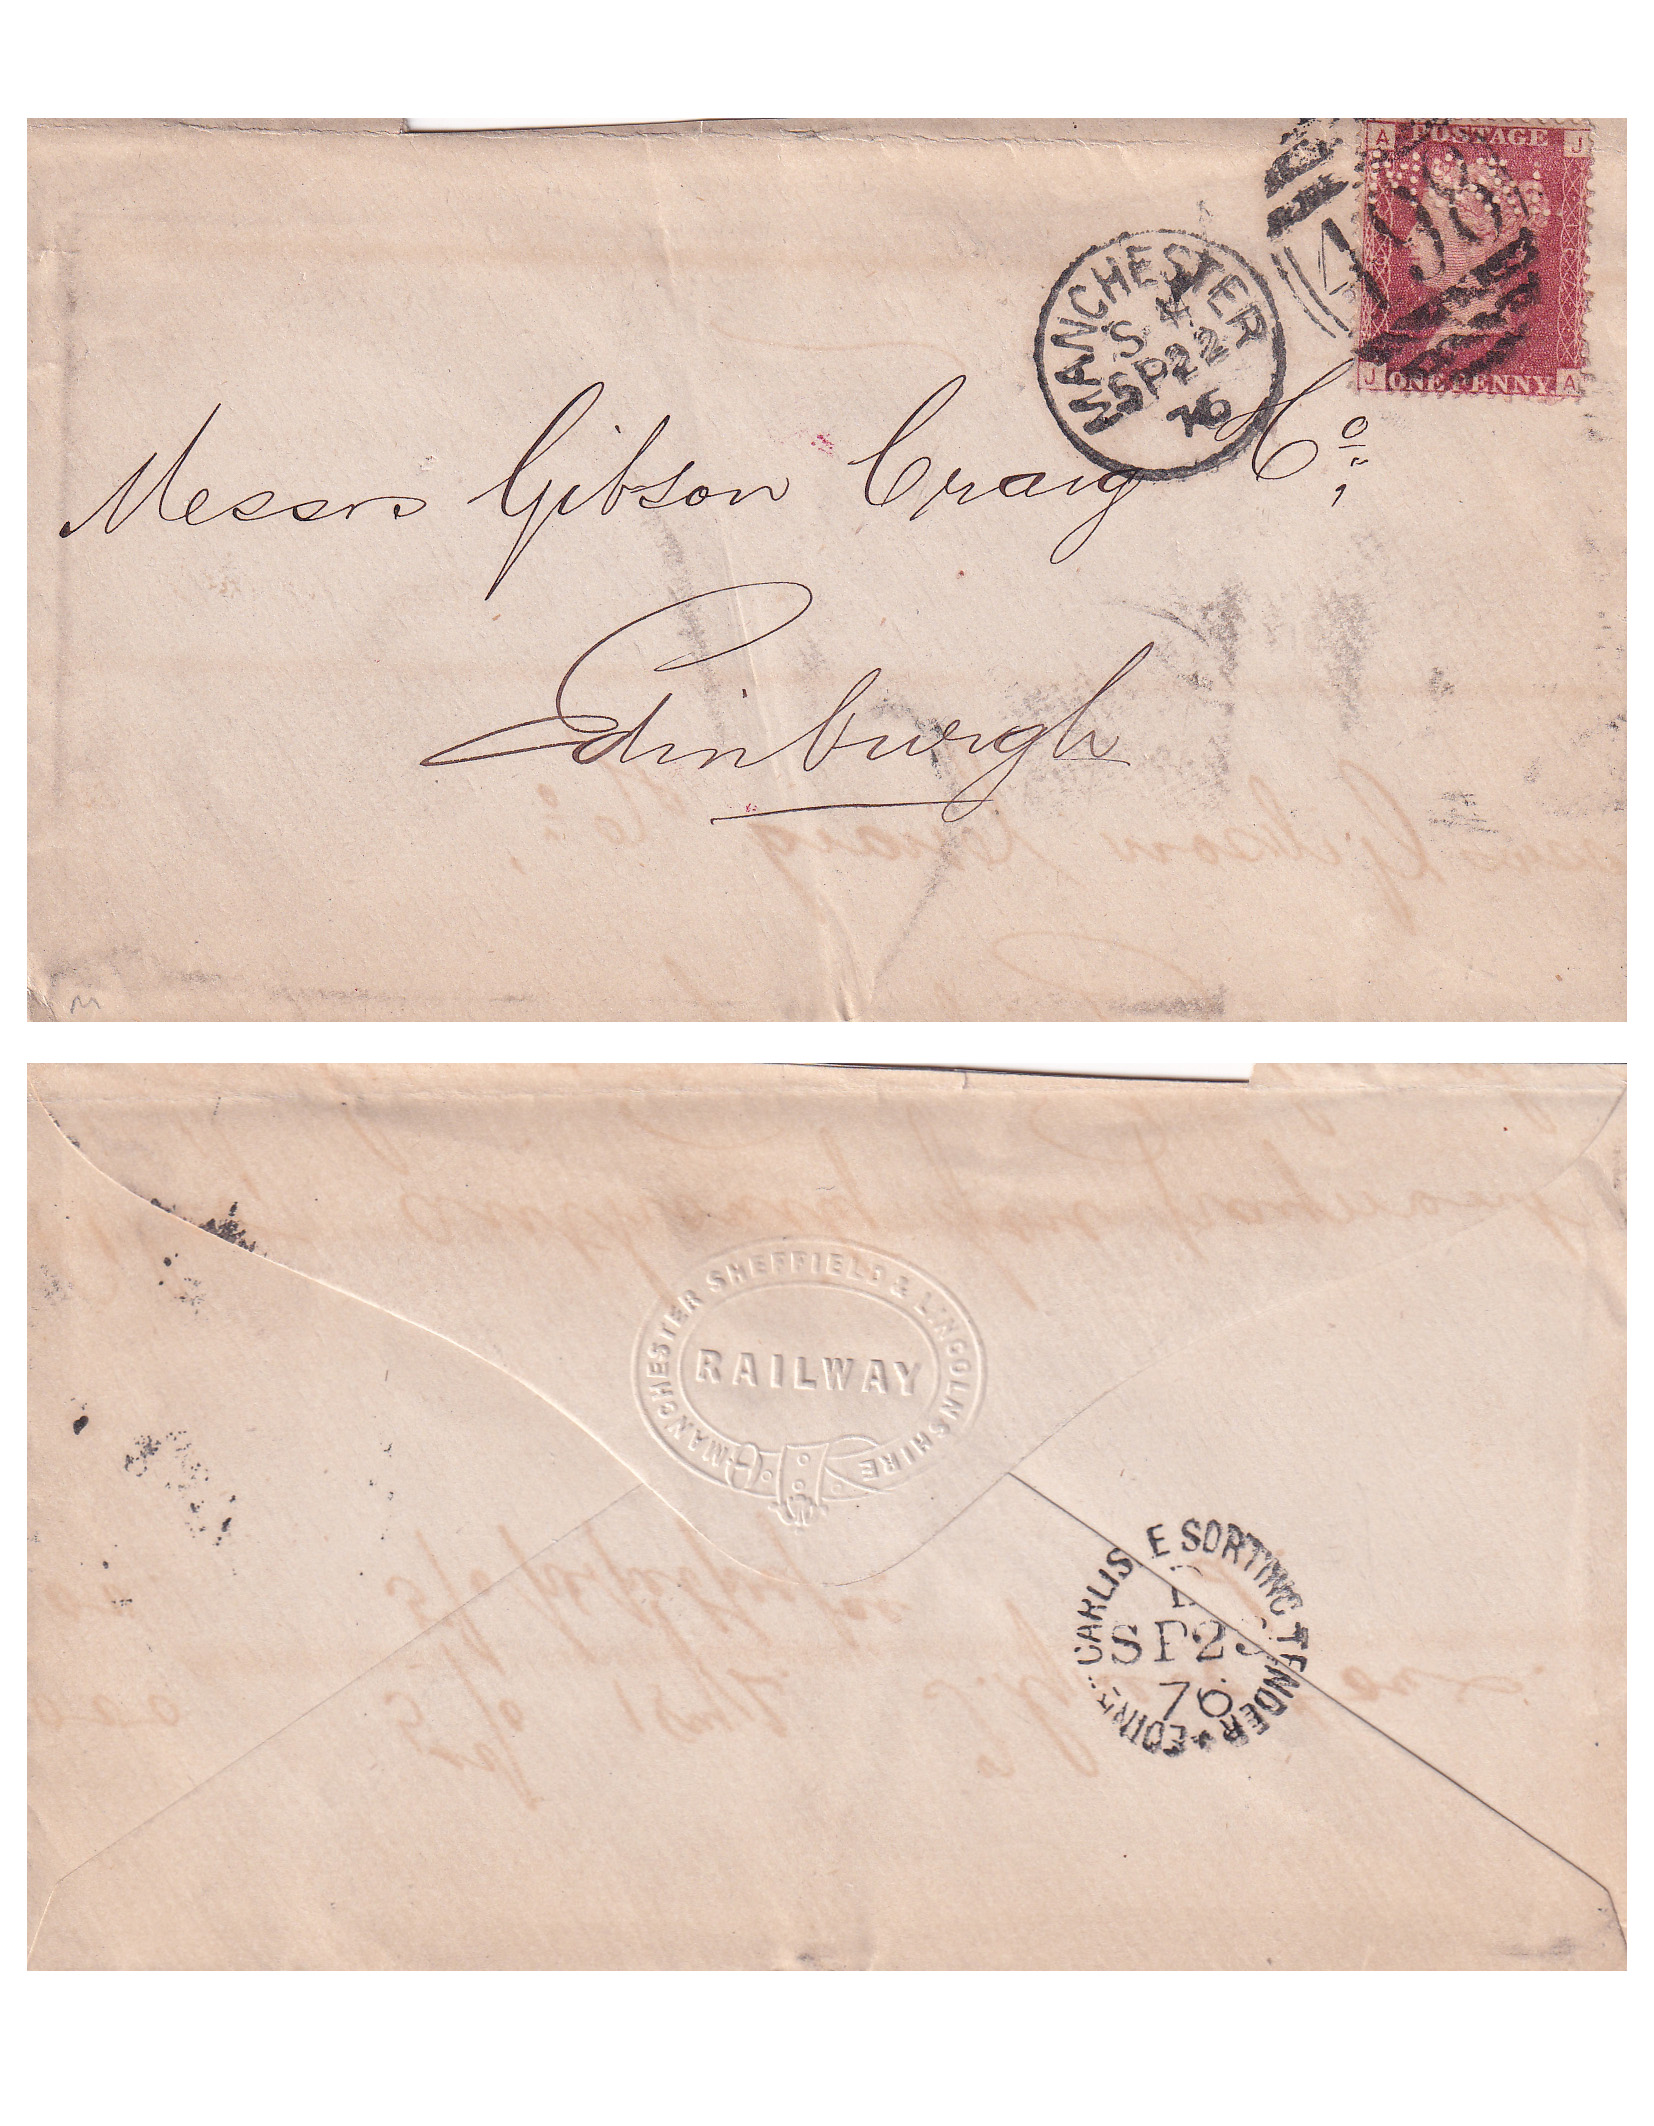 A POSTAGE J
J ONE PENNY A
498
MANCHESTER
S
SP22
76
Messrs Gibson Craig & Co.,
Edinburgh
MANCHESTER SHEFFIELD & LINCOLNSHIRE
RAILWAY
CARLISLE SORTING TENDER
SP23
76